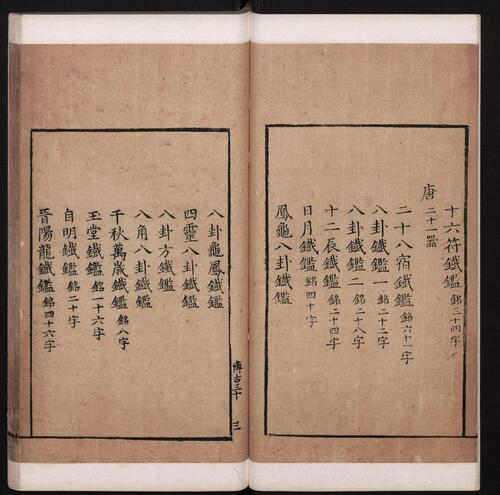 十六符鐵鑑 銘三十四字
唐 二十一器
二十八宿鐵鑑 銘六十一字
八卦鐵鑑一 銘二十二字
八卦鐵鑑二 銘二十八字
十二辰鐵鑑 銘二十四字
日月鐵鑑 銘四十字
鳳龜八卦鐵鑑
八卦龜鳳鐵鑑
四靈八卦鐵鑑
八卦方鐵鑑
八角八卦鐵鑑
千秋萬歲鐵鑑 銘八字
玉堂鐵鑑 銘一十六字
自明鐵鑑 銘二十字
晉陽龍鐵鑑 銘四十六字
博古三十 三